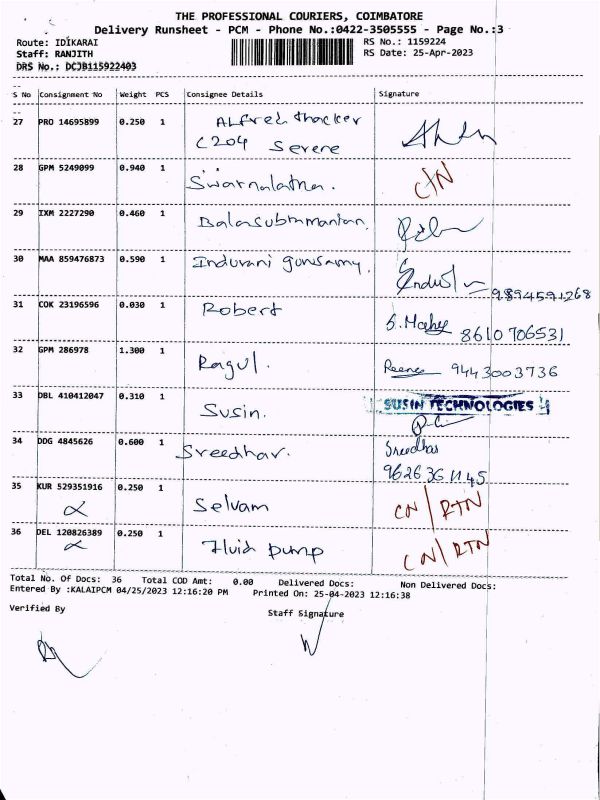 THE PROFESSIONAL COURIERS, COIMBATORE
Delivery Runsheet - PCM - Phone No.:0422-3505555 - Page No.:3
Route: IDIKARAI RS No.: 1159224
Staff: RANJITH RS Date: 25-Apr-2023
DRS No.: DCJB115922403
S No Consignment No Weight PCS Consignee Details Signature
27 PRO 14695899 0.250 1 Alfred thacker
C204 Serene
28 GPM 5249099 0.940 1 Swarnalatha. C/N
29 IXM 2227290 0.460 1 Balasubramanian.
30 MAA 859476873 0.590 1 Indurani gurusamy.
9894591268
31 COK 23196596 0.030 1 Robert 8610706531
32 GPM 286978 1.300 1 Ragul. 9443003736
33 DBL 410412047 0.310 1 Susin. SUSIN TECHNOLOGIES
34 DDG 4845626 0.600 1 Sreedhar. Sreedhar
9626361145
35 KUR 529351916 0.250 1 Selvam CN/RTN
36 DEL 120826389 0.250 1 Fluid pump CN/RTN
Total No. Of Docs: 36 Total COD Amt: 0.00 Delivered Docs: Non Delivered Docs:
Entered By :KALAIPCM 04/25/2023 12:16:20 PM Printed On: 25-04-2023 12:16:38
Verified By Staff Signature